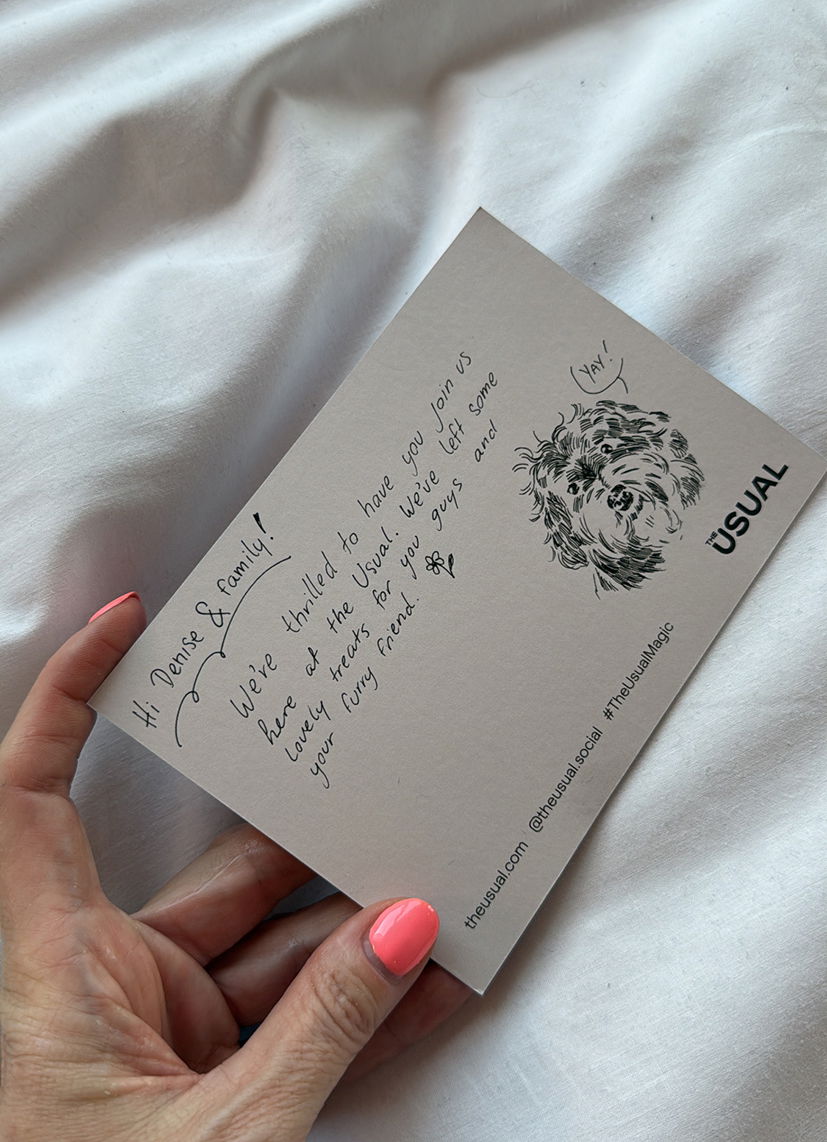 Hi Denise & family!
We've thrilled to have you join us
here at the Usual. We've left some
lovely treats for you guys and
your furry friend.
YAY!
THE
USUAL
theusual.com @theusual.social #TheUsualMagic